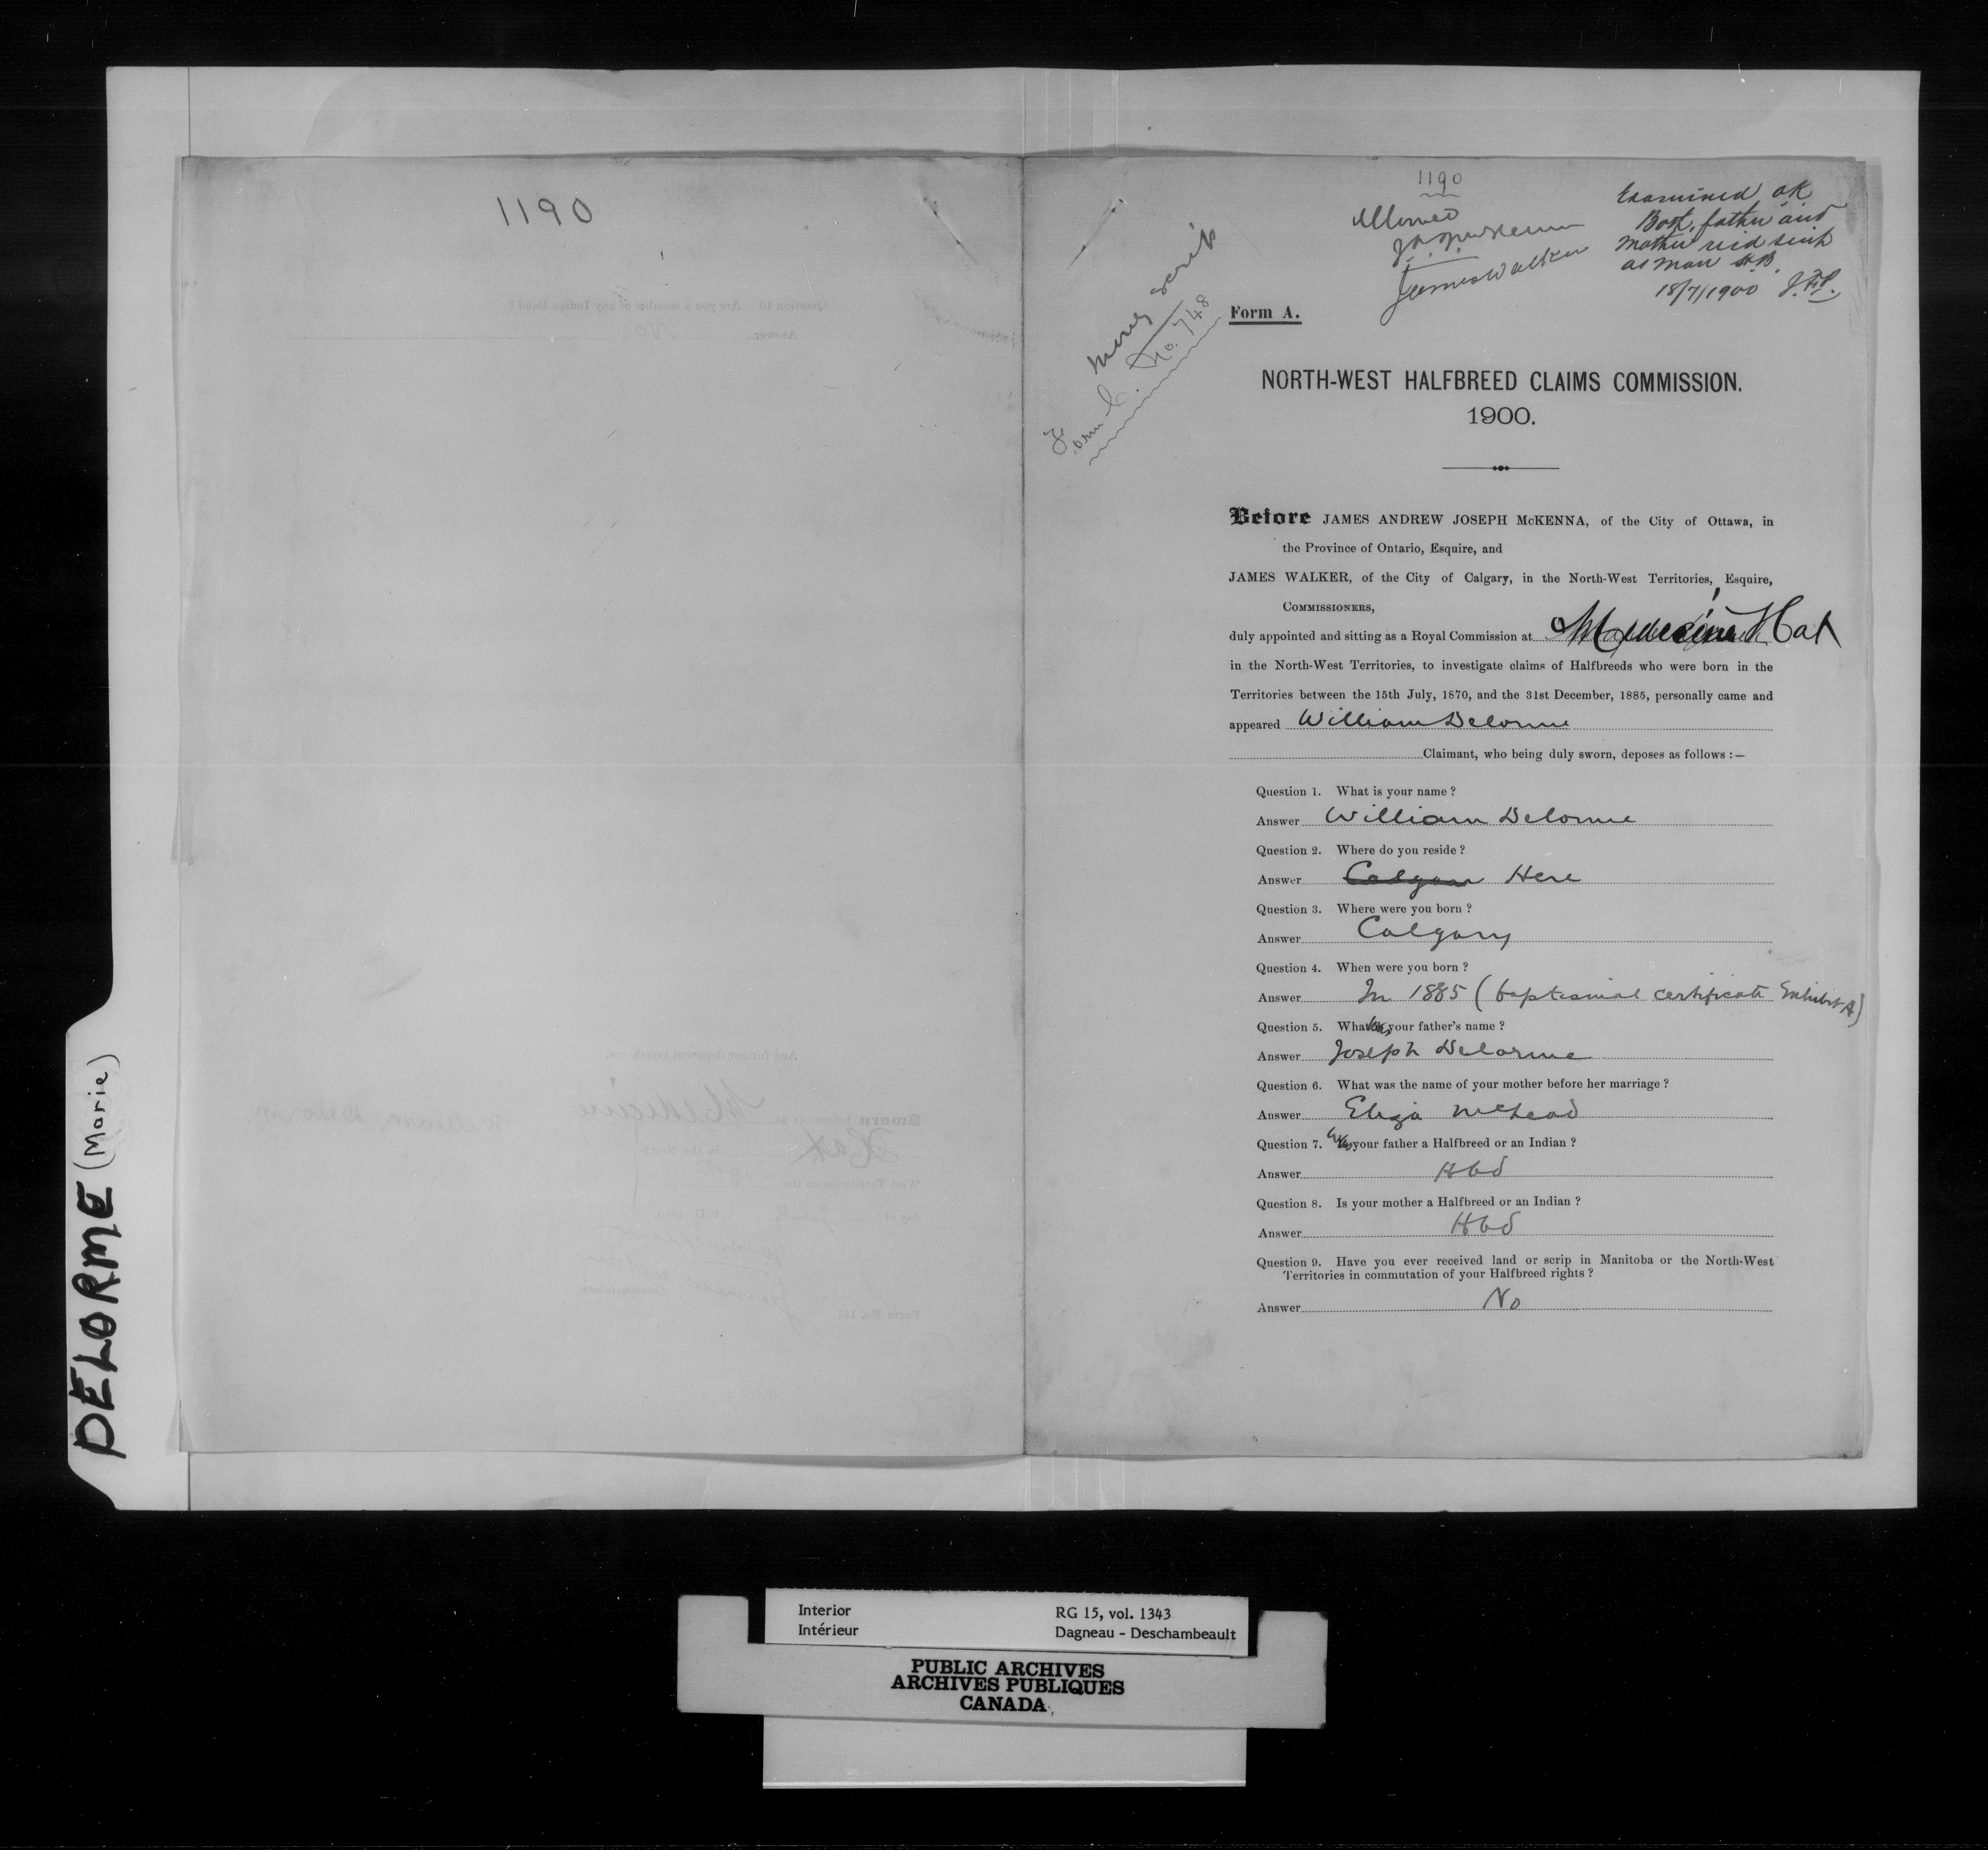 1190
DELORME (Marie)
1190
Allowed
J A J McKenna
James Walker
Examined OK
Both father and
mother rec'd scrip
as Man H.B.
18/7/1900 J.F.P.
money scrip
Form C. No. 748
Form A.
NORTH-WEST HALFBREED CLAIMS COMMISSION.
1900.
Before JAMES ANDREW JOSEPH McKENNA, of the City of Ottawa, in
the Province of Ontario, Esquire, and
JAMES WALKER, of the City of Calgary, in the North-West Territories, Esquire,
COMMISSIONERS,
duly appointed and sitting as a Royal Commission at Medicine Hat
in the North-West Territories, to investigate claims of Halfbreeds who were born in the
Territories between the 15th July, 1870, and the 31st December, 1885, personally came and
appeared William Delorme
Claimant, who being duly sworn, deposes as follows :—
Question 1. What is your name ?
Answer William Delorme
Question 2. Where do you reside ?
Answer Calgary Here
Question 3. Where were you born ?
Answer Calgary
Question 4. When were you born ?
Answer In 1885 (baptismal certificate Exhibit A)
Question 5. What was your father's name ?
Answer Joseph Delorme
Question 6. What was the name of your mother before her marriage ?
Answer Eliza McLeod
Question 7. Was your father a Halfbreed or an Indian ?
Answer Hbd
Question 8. Is your mother a Halfbreed or an Indian ?
Answer Hbd
Question 9. Have you ever received land or scrip in Manitoba or the North-West
Territories in commutation of your Halfbreed rights ?
Answer No
Interior RG 15, vol. 1343
Intérieur Dagneau - Deschambeault
PUBLIC ARCHIVES
ARCHIVES PUBLIQUES
CANADA